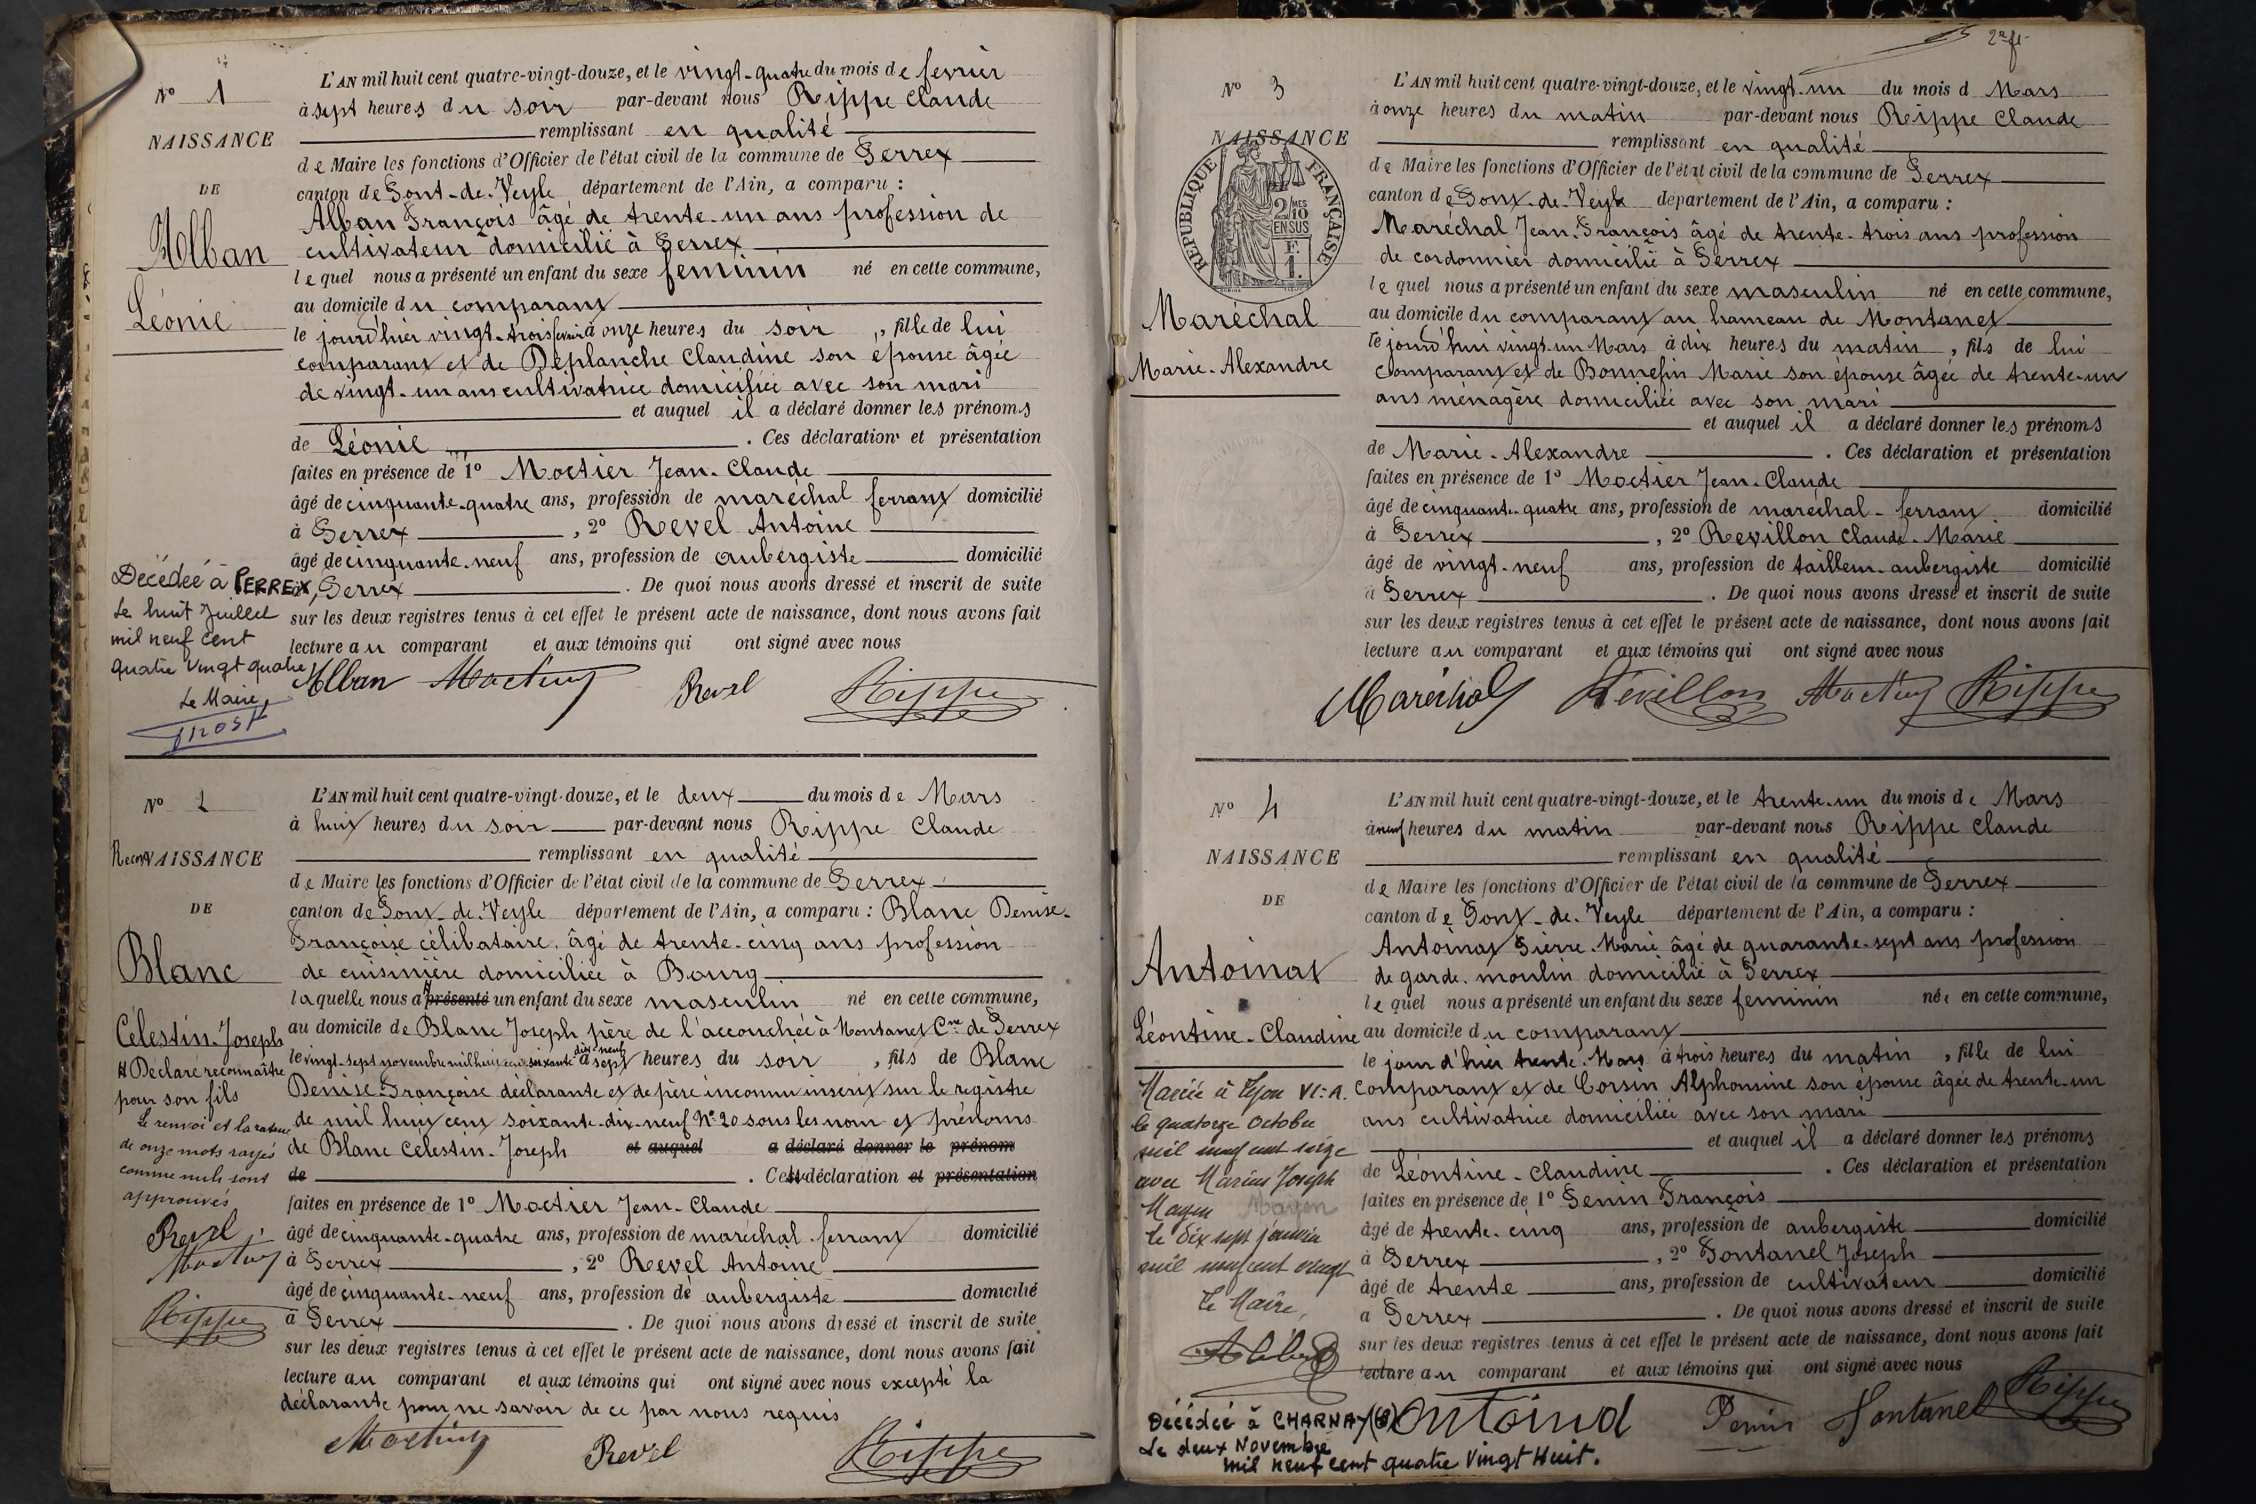 N° 1
NAISSANCE
DE
Alban
Léonie
L'AN mil huit cent quatre-vingt-douze, et le vingt-quatre du mois de fevrier
à sept heures du soir par-devant nous Rippe Claude
remplissant en qualité
de Maire les fonctions d'Officier de l'état civil de la commune de Perrex
canton de Pont-de-Veyle département de l'Ain, a comparu :
Alban François âgé de trente-un ans profession de
cultivateur domicilié à Perrex
lequel nous a présenté un enfant du sexe feminin né en cette commune,
au domicile du comparant
le jourd'hier vingt-trois fevrier à onze heures du soir, fille de lui
comparant et de Déplanche Claudine son épouse âgée
de vingt-un ans cultivatrice domiciliée avec son mari
et auquel il a déclaré donner les prénoms
de Léonie . Ces déclaration et présentation
faites en présence de 1° Moctier Jean-Claude
âgé de cinquante-quatre ans, profession de maréchal ferrant domicilié
à Perrex , 2° Revel Antoine
âgé de cinquante-neuf ans, profession de aubergiste domicilié
à Perrex . De quoi nous avons dressé et inscrit de suite
sur les deux registres tenus à cet effet le présent acte de naissance, dont nous avons fait
lecture au comparant et aux témoins qui ont signé avec nous
Alban Moctier Revel Rippe
Décédée à PERREX,
Le huit Juillet
mil neuf cent
quatre vingt quatre
Le Maire,
N° 2
Recon NAISSANCE
DE
Blanc
Célestin-Joseph
# Déclaré reconnaître
pour son fils
Le renvoi et la rature
de onze mots rayés
comme nuls sont
approuvés
Revel
Moctier
Rippe
L'AN mil huit cent quatre-vingt-douze, et le deux du mois de Mars
à huit heures du soir par-devant nous Rippe Claude
remplissant en qualité
de Maire les fonctions d'Officier de l'état civil de la commune de Perrex
canton de Pont-de-Veyle département de l'Ain, a comparu : Blanc Denise-
Françoise célibataire, âgé de trente-cinq ans profession
de cuisinière domiciliée à Bourg
laquelle nous a # présenté un enfant du sexe masculin né en cette commune,
au domicile de Blanc Joseph père de l'accouchée à Montanet Cne de Perrex
le vingt-sept novembre mil huit cent soixante dix-neuf à sept heures du soir , fils de Blanc
Denise-Françoise déclarante et de père inconnu inscrit sur le registre
de mil huit cent soixante-dix-neuf N° 20 sous les nom et prénoms
de Blanc Celestin-Joseph et auquel a déclaré donner le prénom
de . Cette déclaration et présentation
faites en présence de 1° Moctier Jean-Claude
âgé de cinquante-quatre ans, profession de maréchal-ferrant domicilié
à Perrex , 2° Revel Antoine
âgé de cinquante-neuf ans, profession de aubergiste domicilié
à Perrex . De quoi nous avons dressé et inscrit de suite
sur les deux registres tenus à cet effet le présent acte de naissance, dont nous avons fait
lecture au comparant et aux témoins qui ont signé avec nous excepté la
déclarante pour ne savoir de ce par nous requis
Moctier Revel Rippe
N° 3
NAISSANCE
REPUBLIQUE FRANÇAISE
2/10 MES
EN SUS
F
1.
Maréchal
Marie-Alexandre
L'AN mil huit cent quatre-vingt-douze, et le vingt-un du mois d Mars
à onze heures du matin par-devant nous Rippe Claude
remplissant en qualité
de Maire les fonctions d'Officier de l'état civil de la commune de Perrex
canton de Pont-de-Veyle département de l'Ain, a comparu :
Maréchal Jean-François âgé de trente-trois ans profession
de cordonnier domicilié à Perrex
lequel nous a présenté un enfant du sexe masculin né en cette commune,
au domicile du comparant au hameau de Montanet
le jourd'hui vingt-un Mars à dix heures du matin , fils de lui
comparant et de Bonnefin Marie son épouse âgée de trente-un
ans ménagère domiciliée avec son mari
et auquel il a déclaré donner les prénoms
de Marie-Alexandre . Ces déclaration et présentation
faites en présence de 1° Moctier Jean-Claude
âgé de cinquante-quatre ans, profession de maréchal-ferrant domicilié
à Perrex , 2° Revillon Claude-Marie
âgé de vingt-neuf ans, profession de tailleur-aubergiste domicilié
à Perrex . De quoi nous avons dressé et inscrit de suite
sur les deux registres tenus à cet effet le présent acte de naissance, dont nous avons fait
lecture au comparant et aux témoins qui ont signé avec nous
Maréchal Révillon Moctier Rippe
N° 4
NAISSANCE
DE
Antoinat
Léontine-Claudine
Mariée à Lyon VI: A.
le quatorze Octobre
mil neuf cent seize
avec Marius Joseph
Mayen Mayen
le dix sept janvier
mil neuf cent vingt
Le Maire,
L'AN mil huit cent quatre-vingt-douze, et le trente-un du mois de Mars
à neuf heures du matin par-devant nous Rippe Claude
remplissant en qualité
de Maire les fonctions d'Officier de l'état civil de la commune de Perrex
canton de Pont-de-Veyle département de l'Ain, a comparu :
Antoinat Pierre-Marie âgé de quarante-sept ans profession
de garde-moulin domicilié à Perrex
lequel nous a présenté un enfant du sexe feminin née en cette commune,
au domicile du comparant
le jour d'hier trente-Mars à trois heures du matin , fille de lui
comparant et de Corsin Alphonsine son épouse âgée de trente-un
ans cultivatrice domiciliée avec son mari
et auquel il a déclaré donner les prénoms
de Léontine-Claudine . Ces déclaration et présentation
faites en présence de 1° Penin François
âgé de trente-cinq ans, profession de aubergiste domicilié
à Perrex , 2° Fontanel Joseph
âgé de trente ans, profession de cultivateur domicilié
à Perrex . De quoi nous avons dressé et inscrit de suite
sur les deux registres tenus à cet effet le présent acte de naissance, dont nous avons fait
lecture au comparant et aux témoins qui ont signé avec nous
Antoinat Penin Fontanel Rippe
Décédée à CHARNAY
Le deux Novembre
mil neuf cent quatre Vingt Huit.